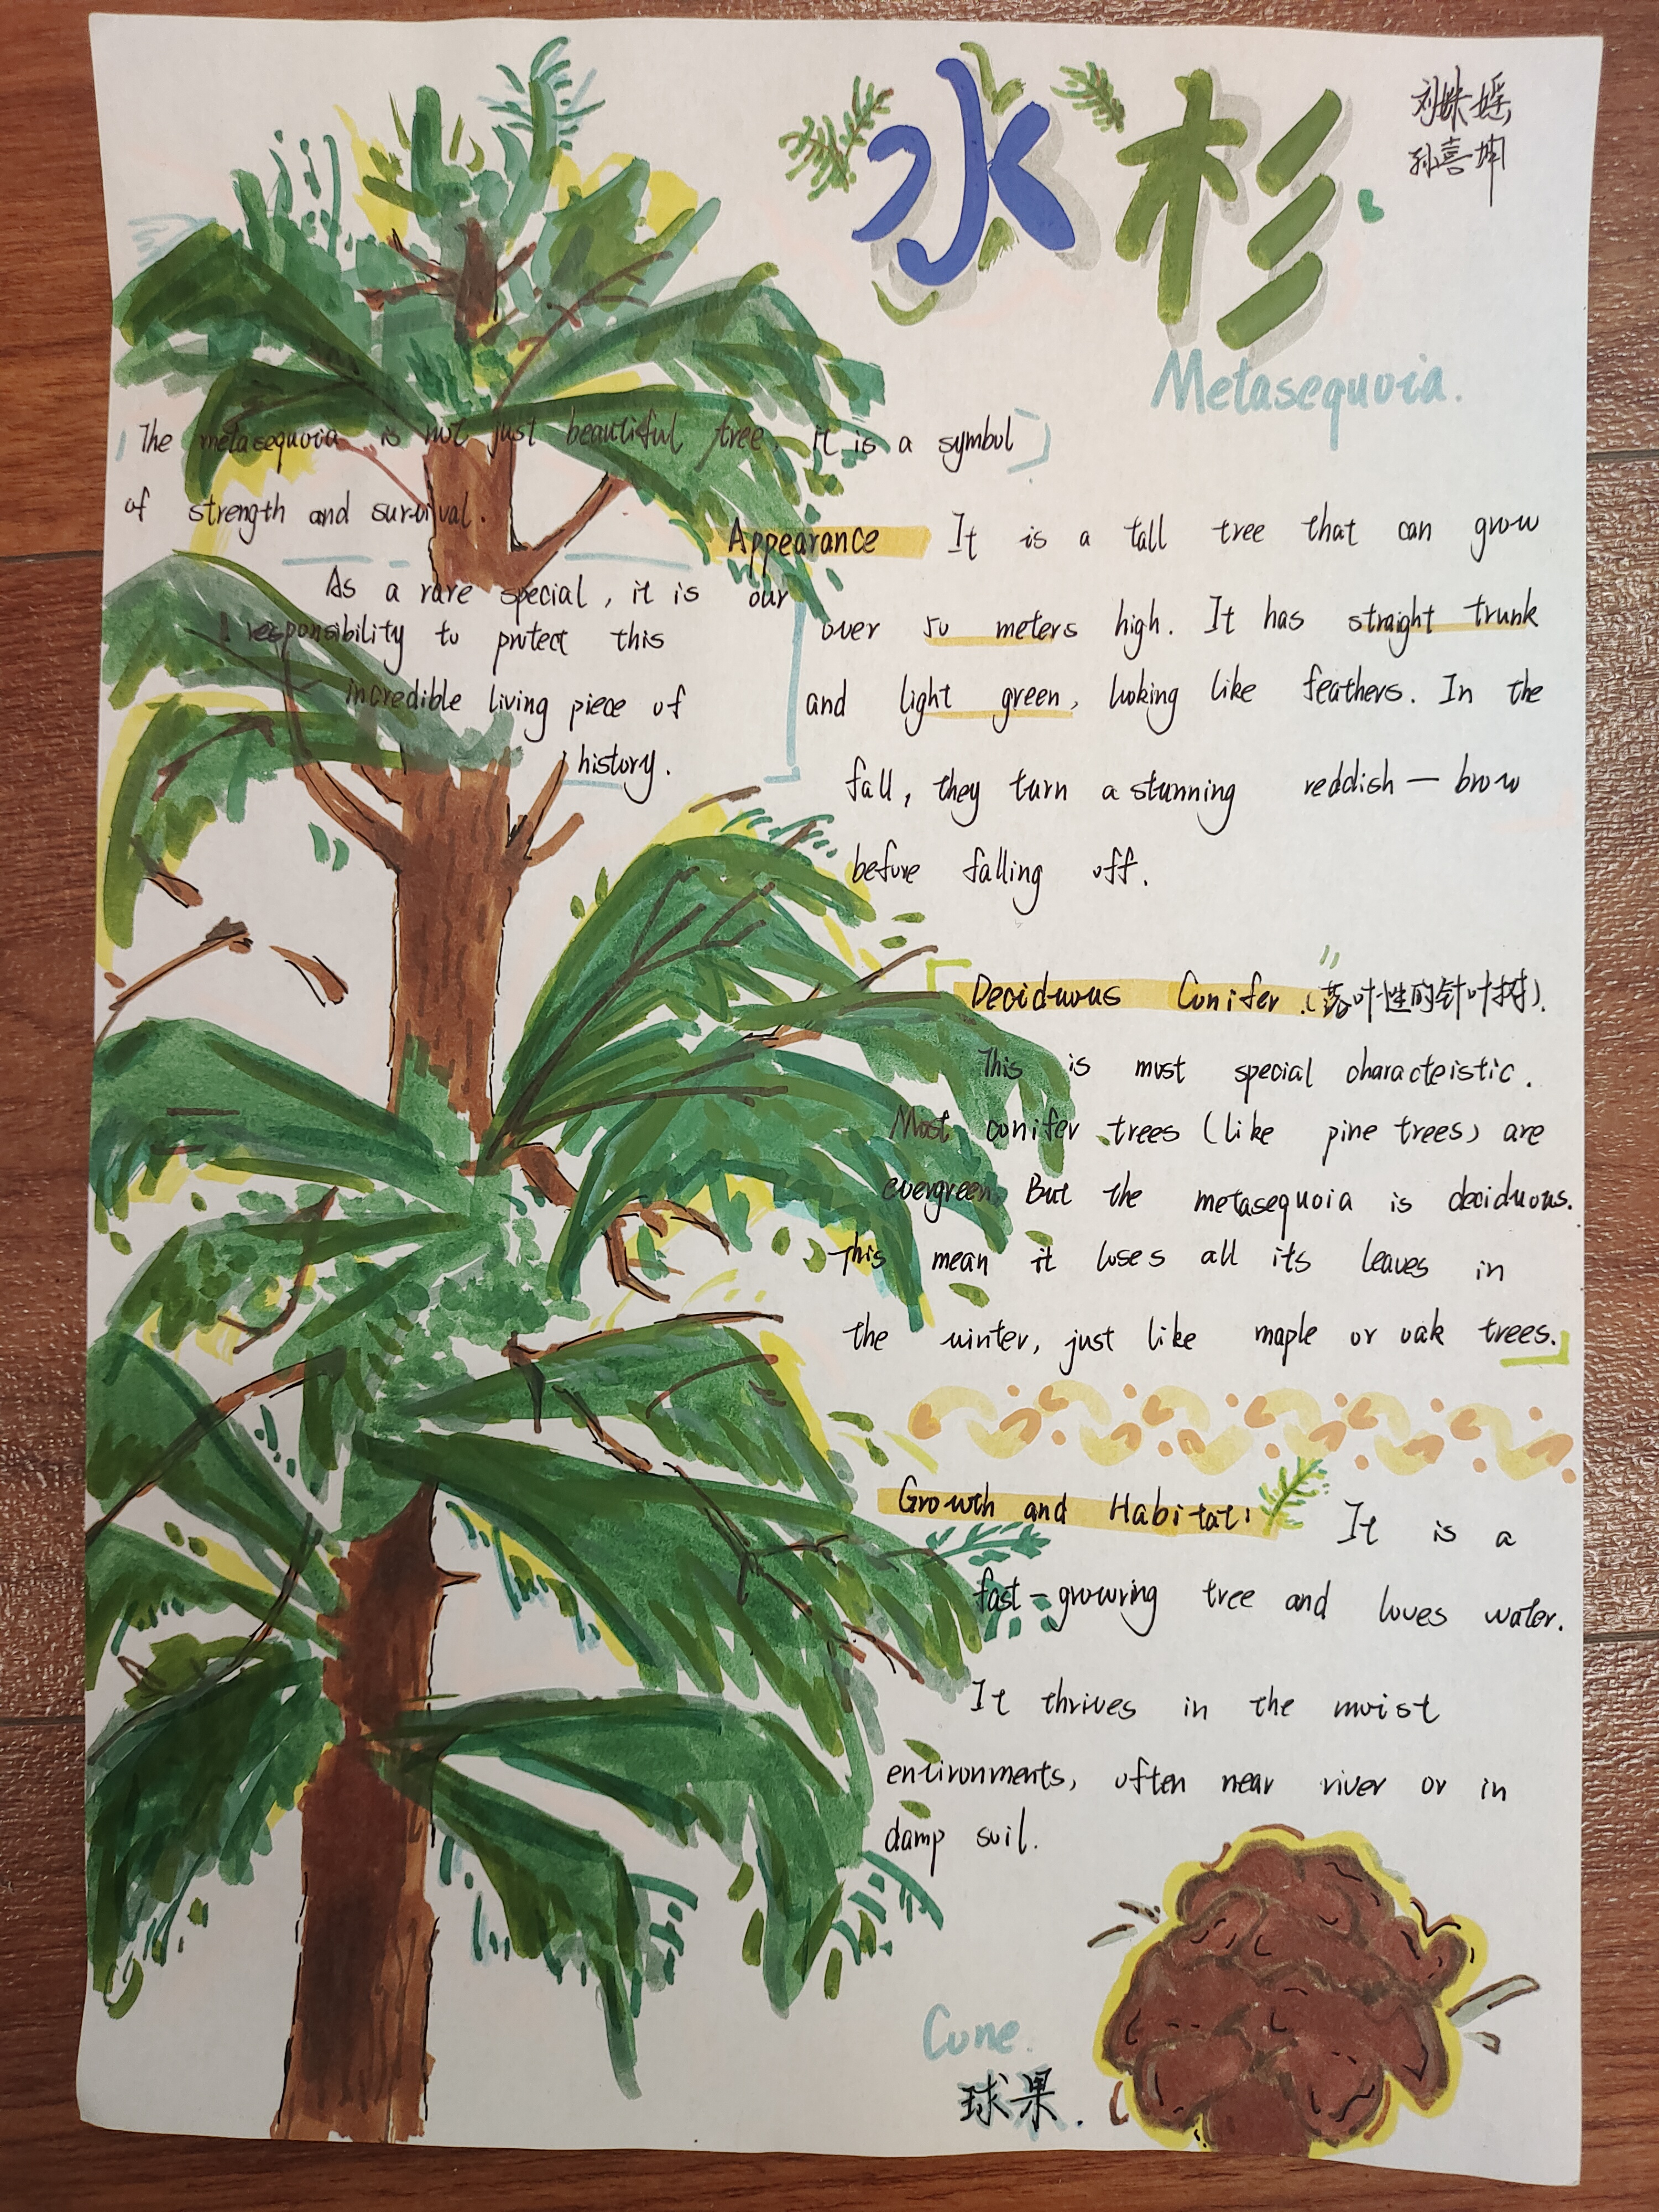 水杉
刘姝婼
孙喜坤
Metasequoia.
The metasequoia is not just beautiful tree, it is a symbol
of strength and survival.
As a rare special, it is our
responsibility to protect this
incredible living piece of
history.
Appearance It is a tall tree that can grow
over 50 meters high. It has straight trunk
and light green, looking like feathers. In the
fall, they turn a stunning reddish — brow
before falling off.
Deciduous Conifer.(落叶性的针叶树).
This is most special characteistic.
Most conifer trees (like pine trees) are
evergreen. But the metasequoia is deciduous.
This mean it loses all its leaves in
the winter, just like maple or oak trees.
Growth and Habitat: It is a
fast-growring tree and loves water.
It thrives in the moist
environments, often near river or in
damp soil.
Cone.
球果.